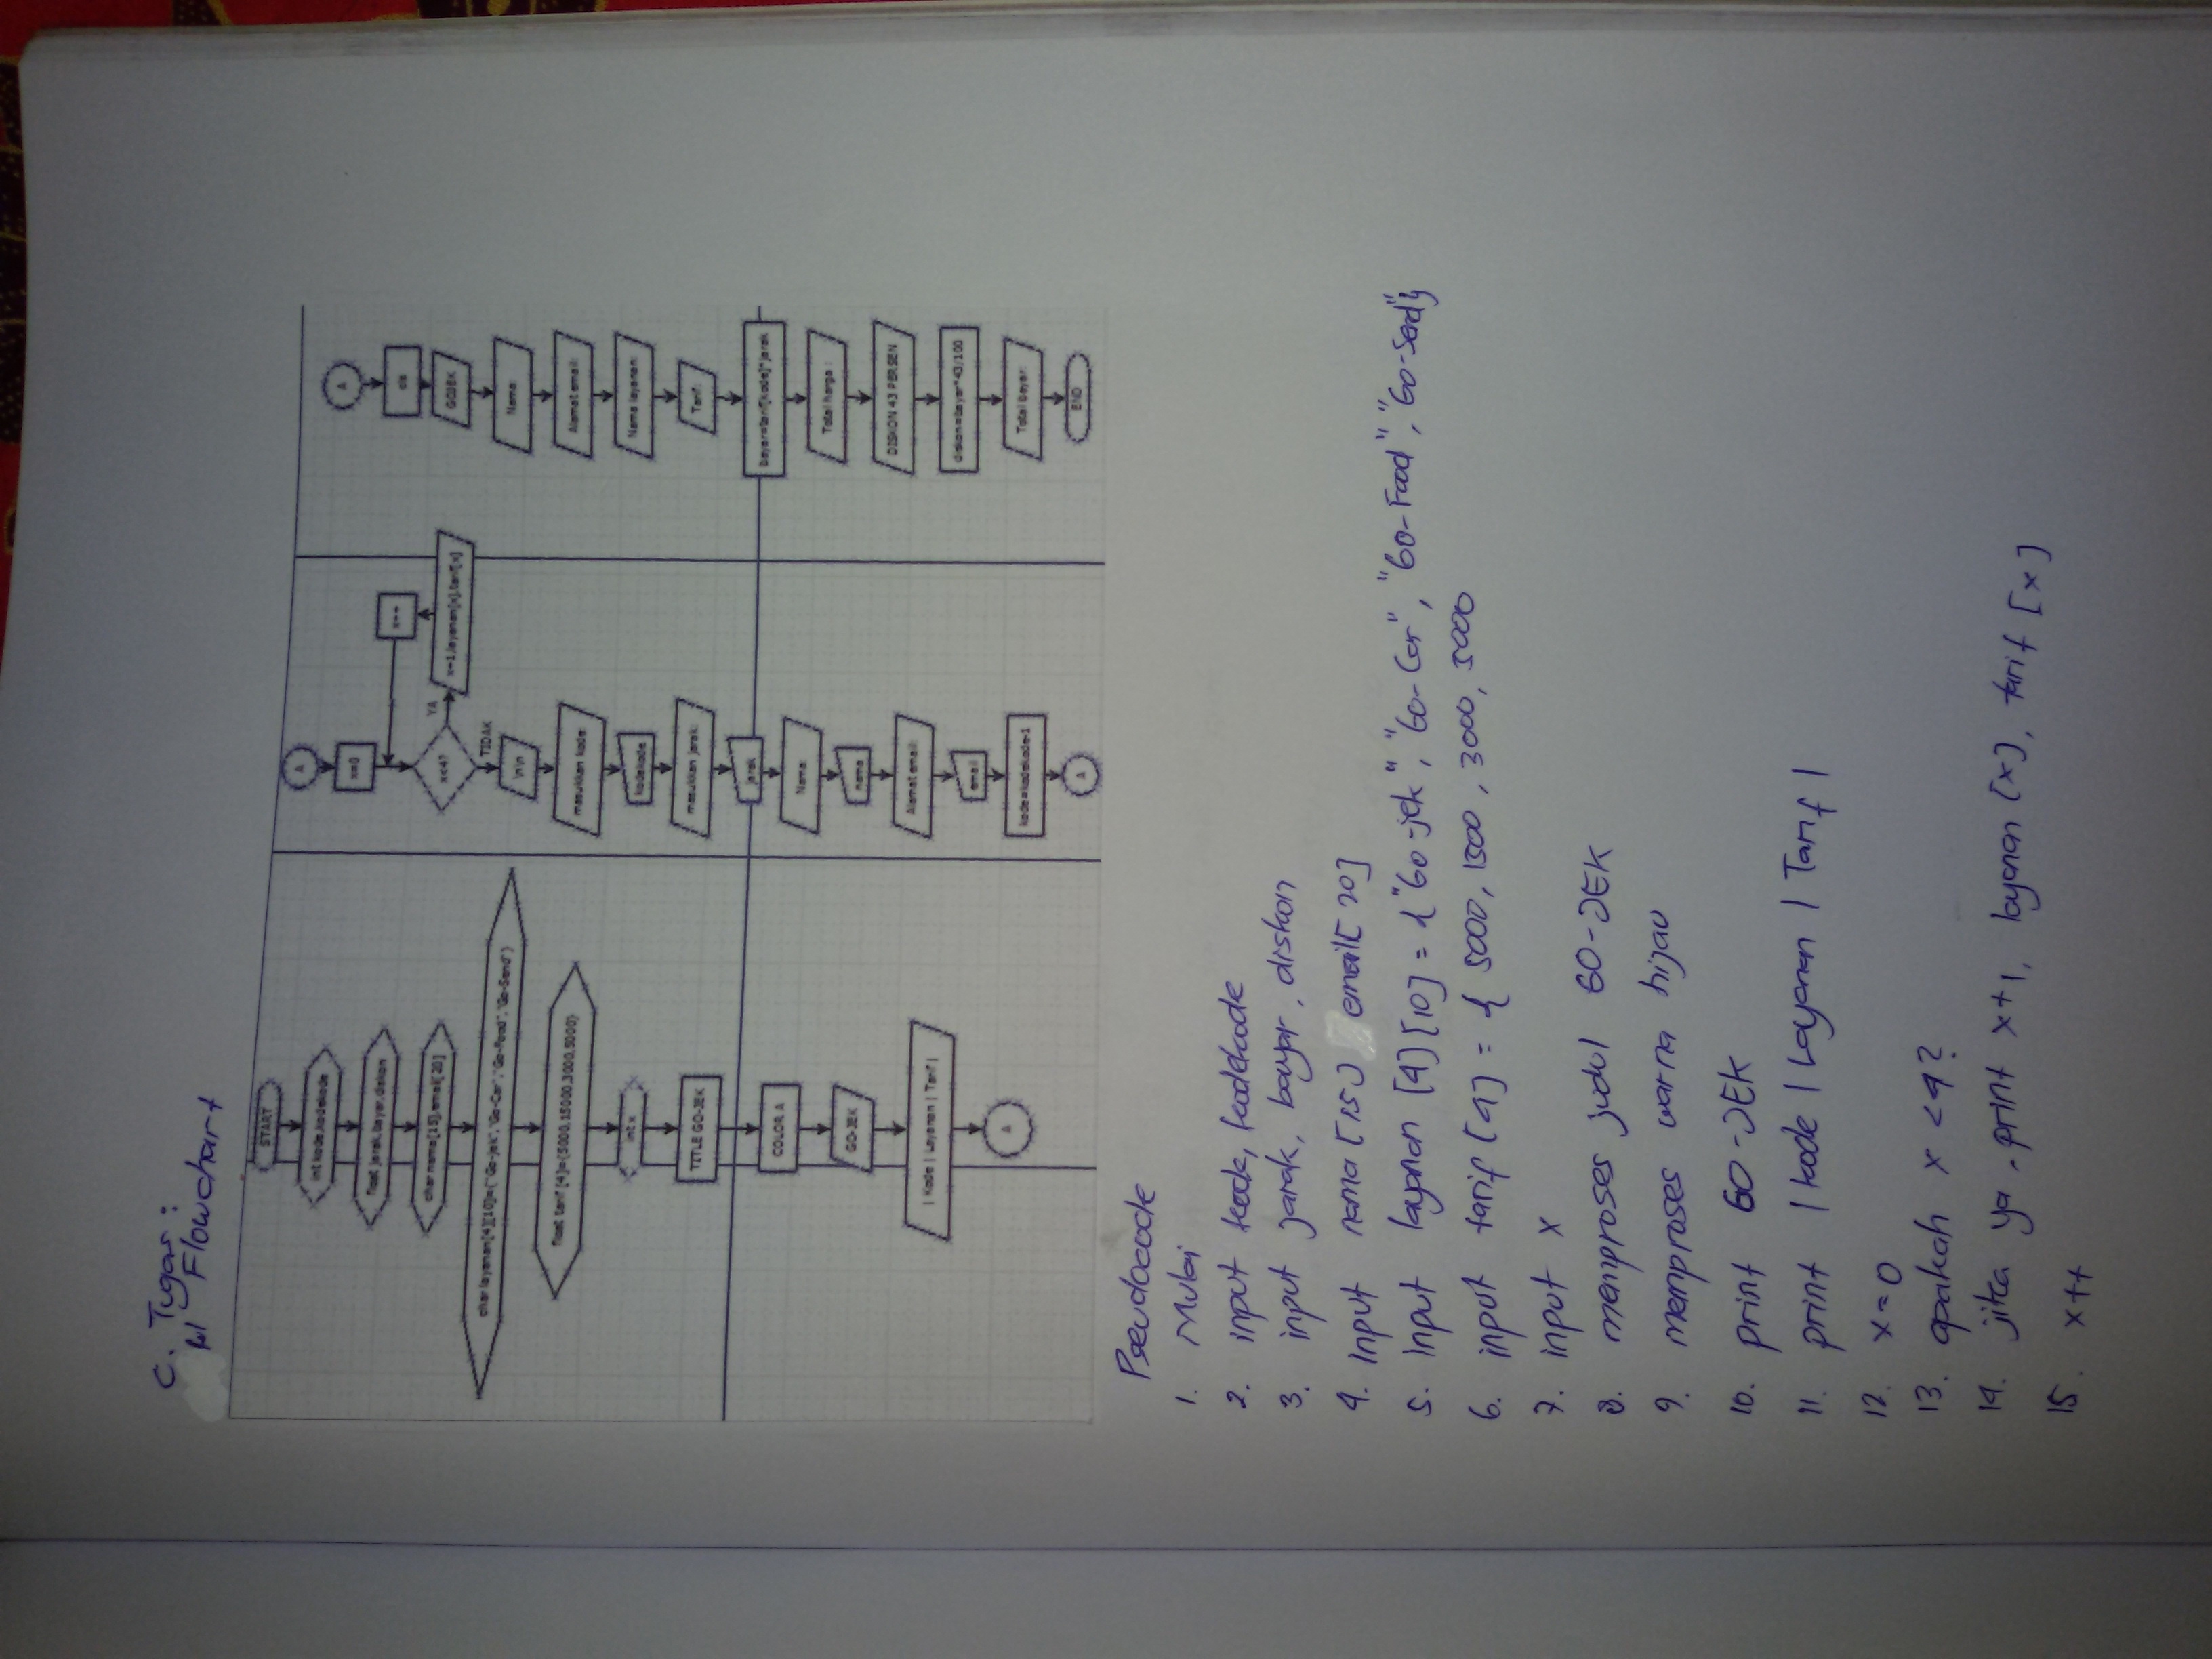 C. Tugas :
Flowchart
START
int kode,kodekode
float jarak,bayar,diskon
char nama[15],email[20]
char layanan[4][10]={"Go-jek","Go-Car","Go-Food","Go-Send"}
float tarif [4]={5000,15000,3000,5000}
int x
TITLE GO-JEK
COLOR A
GO-JEK
| Kode | Layanan | Tarif |
A
A
x=0
x<4?
YA
layanan[x],tarif[x]
TIDAK
\n\n
masukkan kode:
kodekode
masukkan jarak:
jarak
Nama:
nama
Alamat email:
email
kode=kodekode-1
A
A
cls
GOJEK
Nama:
Alamat email:
Nama layanan:
Tarif:
bayar=tarif[kode]*jarak
Total harga :
DISKON 43 PERSEN
diskon=bayar*43/100
Total bayar:
END
Pseudocode
1. Mulai
2. input kode, kodekode
3. input jarak, bayar, diskon
4. Input nama [15] email[20]
5. input layanan [4][10] = {"Go-jek", "Go-Car", "Go-Food", "Go-Send"}
6. input tarif [4] = { 5000, 1500, 3000, 5000
7. input x
8. memproses judul GO-JEK
9. memproses warna hijau
10. print GO-JEK
11. print | kode | Layanan | Tarif |
12. x=0
13. apakah x <4?
14. jika ya . print x+1, layanan [x], tarif [x]
15. x++